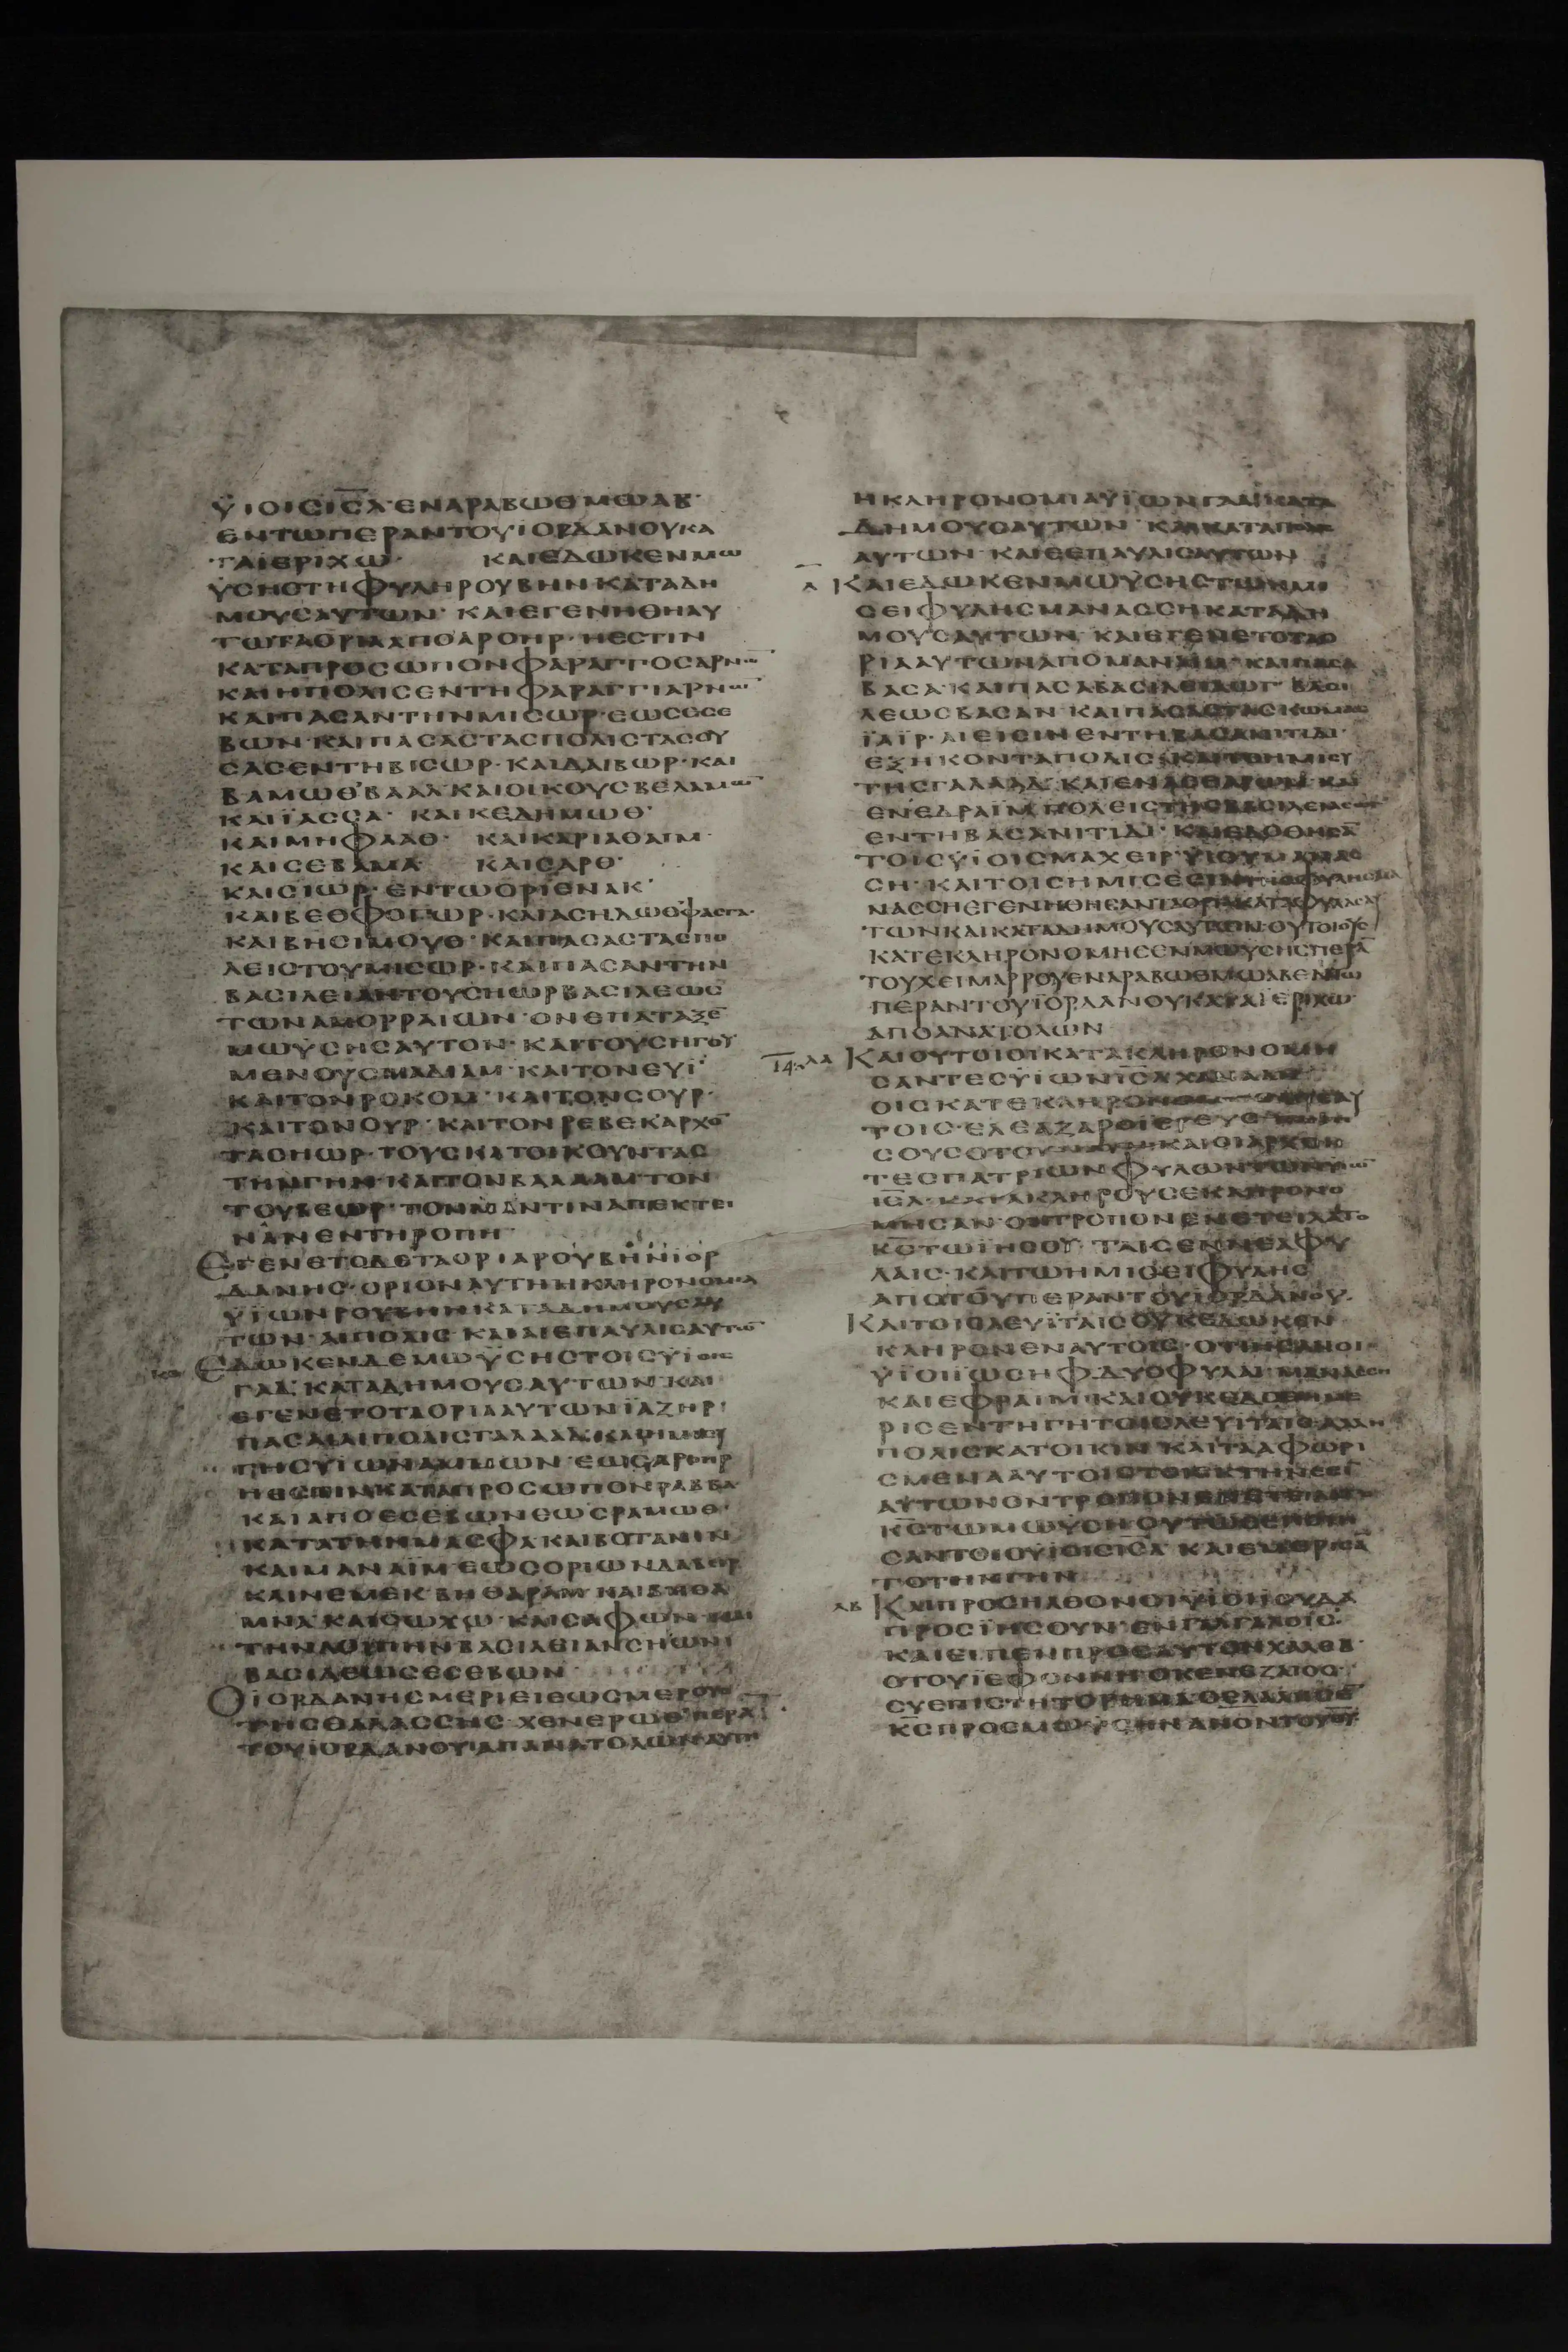 ΫΙΟΙΣΙΣ̅Λ̅·ΕΝΑΡΑΒΩΘΜΩΑΒ·
ΕΝΤΩΠΕΡΑΝΤΟΥΙΟΡΔΑΝΟΥΚΑ
ΤΑΙΕΡΙΧΩ· ΚΑΙΕΔΩΚΕΝΜΩ
ΫΣΗΣΤΗΦΥΛΗΡΟΥΒΗΝΚΑΤΑΔΗ
ΜΟΥΣΑΥΤΩΝ· ΚΑΙΕΓΕΝΗΘΗΑΥ
ΤΩΤΑΟΡΙΑΑΠΟΑΡΟΗΡ·ΗΕΣΤΙΝ
ΚΑΤΑΠΡΟΣΩΠΟΝΦΑΡΑΓΓΟΣΑΡΝΩ̅
ΚΑΙΗΠΟΛΙΣΕΝΤΗΦΑΡΑΓΓΙΑΡΝΩ̅
ΚΑΙΠΑΣΑΝΤΗΝΜΙΣΩΡ·ΕΩΣΕΣΕ
ΒΩΝ·ΚΑΙΠΑΣΑΣΤΑΣΠΟΛΙΣΤΑΣΟΥ
ΣΑΣΕΝΤΗΒΙΣΩΡ·ΚΑΙΔΑΙΒΩΡ·ΚΑΙ
ΒΑΜΩΘΒΑΑΛ·ΚΑΙΟΙΚΟΥΣΒΕΛΑΜΩ̅
ΚΑΙΪΑΣΣΑ· ΚΑΙΚΕΔΗΜΩΘ·
ΚΑΙΜΗΦΑΑΘ· ΚΑΙΚΑΡΙΑΘΑΙΜ·
ΚΑΙΣΕΒΑΜΑ· ΚΑΙΣΑΡΘ·
ΚΑΙΣΙΩΡ·ΕΝΤΩΟΡΙΕΝΑΚ·
ΚΑΙΒΕΘΦΟΓΩΡ·ΚΑΙΑΣΗΔΩΘΦΑΣΓΑ·
ΚΑΙΒΗΣΙΜΟΥΘ·ΚΑΙΠΑΣΑΣΤΑΣΠΟ
ΛΕΙΣΤΟΥΜΙΣΩΡ·ΚΑΙΠΑΣΑΝΤΗΝ
ΒΑΣΙΛΕΙΑΝΤΟΥΣΗΩΡΒΑΣΙΛΕΩΣ
ΤΩΝΑΜΟΡΡΑΙΩΝ·ΟΝΕΠΑΤΑΞΕ̅
ΜΩΫΣΗΣΑΥΤΟΝ·ΚΑΙΤΟΥΣΗΓΟΥ
ΜΕΝΟΥΣΜΑΔΙΑΜ·ΚΑΙΤΟΝΕΥΙ·
ΚΑΙΤΟΝΡΟΚΟΜ·ΚΑΙΤΟΝΣΟΥΡ·
ΚΑΙΤΟΝΟΥΡ·ΚΑΙΤΟΝΡΕΒΕΚΑΡΧΟ̅
ΤΑΣΗΩΡ·ΤΟΥΣΚΑΤΟΙΚΟΥΝΤΑΣ
ΤΗΝΓΗΝ·ΚΑΙΤΟΝΒΑΛΑΑΜΤΟΝ
ΤΟΥΒΕΩΡ·ΤΟΝΜΑΝΤΙΝΑΠΕΚΤΕΙ
ΝΑΝΕΝΤΗΡΟΠΗ·
ΕΓΕΝΕΤΟΔΕΤΑΟΡΙΑΡΟΥΒΗΝΙΟΡ
ΔΑΝΗΣ·ΟΡΙΟΝΑΥΤΗΗΚΛΗΡΟΝΟΜΙΑ
ΫΙΩΝΡΟΥΒΗΝΚΑΤΑΔΗΜΟΥΣΑΥ
ΤΩΝ·ΑΙΠΟΛΙΣ·ΚΑΙΑΙΕΠΑΥΛΙΣΑΥΤΩ̅
ΕΔΩΚΕΝΔΕΜΩΫΣΗΣΤΟΙΣΫΙΟΙΣ
ΓΑΔ·ΚΑΤΑΔΗΜΟΥΣΑΥΤΩΝ·ΚΑΙ
ΕΓΕΝΕΤΟΤΑΟΡΙΑΑΥΤΩΝΪΑΖΗΡ·
ΠΑΣΑΙΑΙΠΟΛΙΣΓΑΛΑΑΔ·ΚΑΙΤΟΗΜΙΣΥ
ΓΗΣΥΪΩΝΑΜΜΩΝ·ΕΩΣΑΡΟΗΡ
ΗΕΣΤΙΝΚΑΤΑΠΡΟΣΩΠΟΝΡΑΒΒΑ·
ΚΑΙΑΠΟΕΣΕΒΩΝΕΩΣΡΑΜΩΘ·
ΚΑΤΑΤΗΝΜΑΣΦΑ·ΚΑΙΒΟΤΑΝΙΝ
ΚΑΙΜΑΝΑΪΜΕΩΣΟΡΙΩΝΔΑΒΕΙΡ
ΚΑΙΝΕΜΕΚ·ΒΗΘΑΡΑΜ·ΚΑΙΒΗΘΑ
ΜΝΑ·ΚΑΙΣΩΧΩ·ΚΑΙΣΑΦΩΝ·ΚΑΙ
ΤΗΝΛΟΙΠΗΝΒΑΣΙΛΕΙΑΝΣΗΩΝ
ΒΑΣΙΛΕΩΣΕΣΕΒΩΝ·
ΟΙΟΡΔΑΝΗΣΜΕΡΙΕΙΕΩΣΜΕΡΟΥΣ
ΤΗΣΘΑΛΑΣΣΗΣ·ΧΕΝΕΡΩΘΠΕΡΑ̅
ΤΟΥΪΟΡΔΑΝΟΥΑΠΑΝΑΤΟΛΩΝΑΥΤΗ
ΗΚΛΗΡΟΝΟΜΙΑΫΪΩΝΓΑΔΚΑΤΑ
ΔΗΜΟΥΣΑΥΤΩΝ·
ΑΥΤΩΝ·ΚΑΙΕΠΑΥΛΙΣΑΥΤΩΝ
ΚΑΙΕΔΩΚΕΝΜΩΫΣΗΣΤΩΗΜΙ
ΣΕΙΦΥΛΗΣΜΑΝΑΣΣΗΚΑΤΑΔΗ
ΜΟΥΣΑΥΤΩΝ·ΚΑΙΕΓΕΝΕΤΟΤΑΟ
ΡΙΑΑΥΤΩΝΑΠΟΜΑΝΑΪΜ·ΚΑΙΠΑΣΑ
ΒΑΣΑ·ΚΑΙΠΑΣΑΒΑΣΙΛΕΙΑΩΓ·ΒΑΣΙ
ΛΕΩΣΒΑΣΑΝ·ΚΑΙΠΑΣΑΣΤΑΣΚΩΜΑΣ
ΪΑΪΡ·ΑΙΕΙΣΙΝΕΝΤΗΒΑΣΑΝΙΤΙΔΙ·
ΕΞΗΚΟΝΤΑΠΟΛΙΣ·ΚΑΙΤΟΗΜΙΣΥ
ΤΗΣΓΑΛΑΑΔ·ΚΑΙΕΝΑΣΘΑΡΩΜ·ΚΑΙ
ΕΝΕΔΡΑΪΜ·ΠΟΛΕΙΣΤΗΣΒΑΣΙΛΕΙΑΣ
ΕΝΤΗΒΑΣΑΝΙΤΙΔΙ·ΚΑΙΕΔΟΘΗΣΑ̅
ΤΟΙΣΫΙΟΙΣΜΑΧΕΙΡ·ΫΙΟΥΜΑΝΑΣ
ΣΗ·ΚΑΙΤΟΙΣΗΜΙΣΕΣΙΝ
ΤΩΝΚΑΙΚΑΤΑΔΗΜΟΥΣΑΥΤΩΝ·ΟΥΤΟΙΟΥΣ
ΚΑΤΕΚΛΗΡΟΝΟΜΗΣΕΝΜΩΥΣΗΣΠΕΡΑ̅
ΤΟΥΧΕΙΜΑΡΡΟΥΕΝΑΡΑΒΩΘΜΩΑΒΕΝΤΩ
ΠΕΡΑΝΤΟΥΪΟΡΔΑΝΟΥΚΑΤΑΪΕΡΙΧΩ·
ΑΠΟΑΝΑΤΟΛΩΝ
ΚΑΙΟΥΤΟΙΟΙΚΑΤΑΚΛΗΡΟΝΟΜΗ
ΣΑΝΤΕΣΫΙΩΝΙΣ̅Λ̅ΧΑΝΑΑΝ
ΟΙΣΚΑΤΕΚΛΗΡΟΝΟΜ
ΤΟΙΣ·ΕΛΕΑΖΑΡ
ΣΟΥΣΟΤΟΥΝΑΥΗ·ΚΑΙΟΙΑΡΧΟΝ
ΤΕΣΠΑΤΡΙΩΝΦΥΛΩΝΤΩΝΥ
ΙΣ̅Λ̅·ΚΑΤΑΚΛΗΡΟΥΣΕΚΛΗΡΟΝΟ
ΜΗΣΑΝ·ΟΝΤΡΟΠΟΝΕΝΕΤΕΙΛΑΤΟ
Κ̅Σ̅ΤΩΪΗΣΟΥ·ΤΑΙΣΕΝΝΕΑΦΥ
ΛΑΙΣ·ΚΑΙΤΩΗΜΙΣΕΙΦΥΛΗΣ
ΑΠΟΤΟΥΠΕΡΑΝΤΟΥΙΟΡΔΑΝΟΥ·
ΚΑΙΤΟΙΣΛΕΥΪΤΑΙΣΟΥΚΕΔΩΚΕΝ
ΚΛΗΡΟΝΕΝΑΥΤΟΙΣ·ΟΤΙΗΣΑΝΟΙ
ΫΪΟΙΪΩΣΗΦ·ΔΥΟΦΥΛΑΙ·ΜΑΝΑΣΣΗ
ΚΑΙΕΦΡΑΙΜ·ΚΑΙΟΥΚΕΔΟΘΗΜΕ
ΡΙΣΕΝΤΗΓΗΤΟΙΣΛΕΥΙΤΑΙΣ·ΑΛΛΗ
ΠΟΛΙΣΚΑΤΟΙΚΙΝ·ΚΑΙΤΑΑΦΩΡΙ
ΣΜΕΝΑΑΥΤΟΙΣΤΟΙΣΚΤΗΝΕΣΙ
ΑΥΤΩΝΟΝΤΡΟΠΟΝΕΝΕΤΕΙΛΑΤΟ
Κ̅Σ̅ΤΩΜΩΫΣΗΟΥΤΩΣΕΠΟΙΗ
ΣΑΝΤΟΙΟΥΪΟΙΣΙΣ̅Λ̅·ΚΑΙΕΜΕΡΙΣΑ̅
ΤΟΤΗΝΓΗΝ
ΚΑΙΠΡΟΣΗΛΘΟΝΟΙΥΪΟΙΪΟΥΔΑ
ΠΡΟΣΪΗΣΟΥΝ·ΕΝΓΑΛΓΑΛΟΙΣ·
ΚΑΙΕΙΠΕΝΠΡΟΣΑΥΤΟΝΧΑΛΕΒ·
ΟΤΟΥΪΕΦΟΝΝΗΟΚΕΝΕΖΑΙΟΣ·
ΣΥΕΠΙΣΤΗΤΟΡΗΜΑΟΕΛΑΛΗΣΕ̅
Κ̅Σ̅ΠΡΟΣΜΩΫΣΗΝΑΝΟΝΤΟΥΘΥ